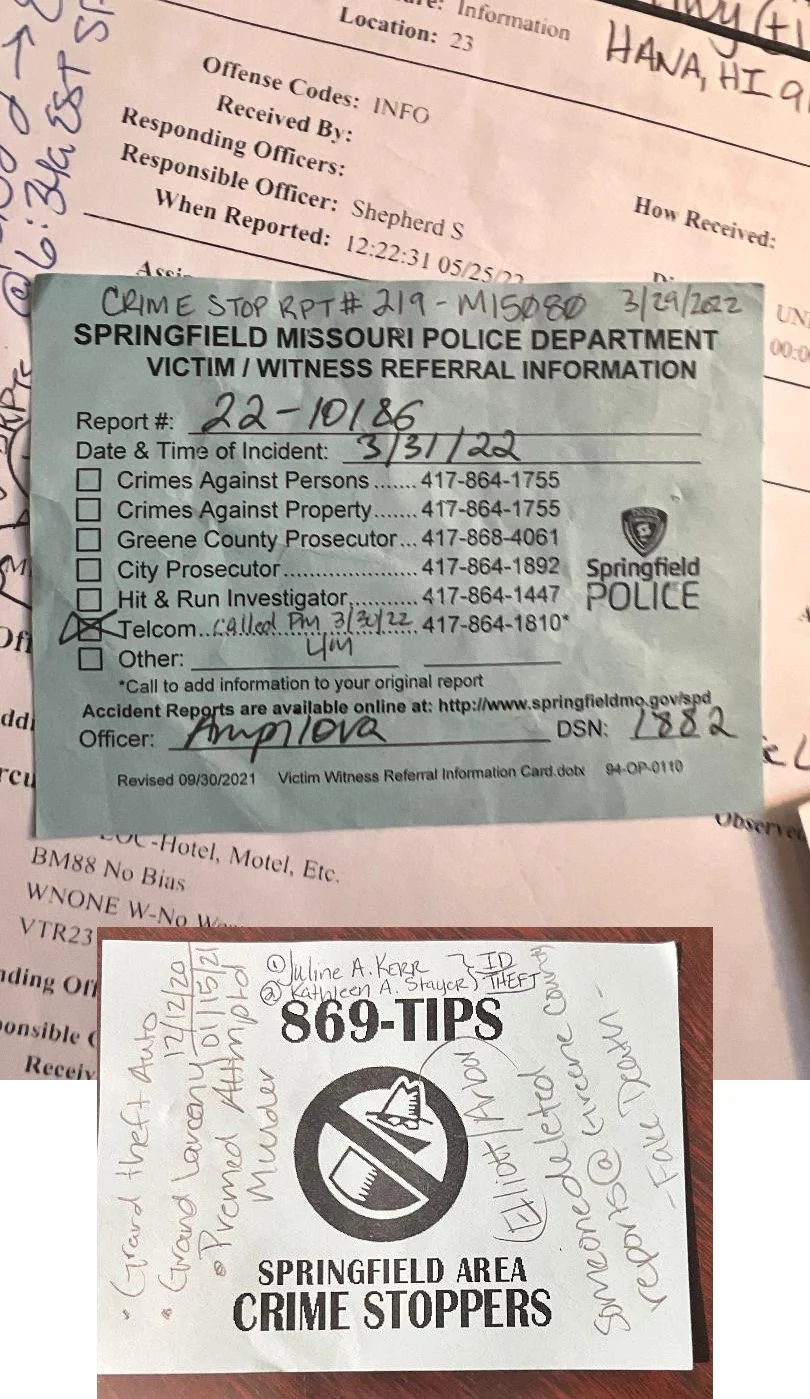 Information
Location: 23
HANA, HI 9
Offense Codes: INFO
Received By:
Responding Officers:
Responsible Officer: Shepherd S
When Reported: 12:22:31 05/25/22
How Received:
@6:34a EST
UN
00:0
CRIME STOP RPT # 219-M15080 3/29/2022
SPRINGFIELD MISSOURI POLICE DEPARTMENT
VICTIM / WITNESS REFERRAL INFORMATION
Report #: 22-10186
Date & Time of Incident: 3/31/22
Crimes Against Persons.......417-864-1755
Crimes Against Property.......417-864-1755
Greene County Prosecutor...417-868-4061
City Prosecutor......................417-864-1892
Hit & Run Investigator..........417-864-1447
Telcom..called PM 3/30/22 417-864-1810*
Other:
Springfield
POLICE
*Call to add information to your original report
Accident Reports are available online at: http://www.springfieldmo.gov/spd
Officer: Ampilova DSN: 1882
Revised 09/30/2021 Victim Witness Referral Information Card.dotx 94-OP-0110
Observe
LOC-Hotel, Motel, Etc.
BM88 No Bias
WNONE W-No
VTR23
nding Off
Receiv
① Juline A. Kerr } ID
② Kathleen A. Stayer } THEFT
869-TIPS
• Grand theft Auto
• Grand Larcony 12/12/20
01/15/21
• Premed Attmptd
Murder
Elliot/Arlow
someone deleted
reports @ Greene County
- Fake Death -
SPRINGFIELD AREA
CRIME STOPPERS